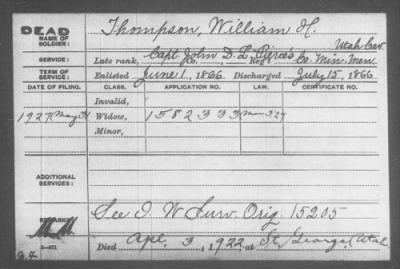 DEAD
NAME OF SOLDIER: Thompson, William H.
Utah Cav
SERVICE: Capt. John D. L. Pierce's Co. Min. Men
Late rank, Co. Reg't
TERM OF SERVICE: Enlisted June 1, 1866 Discharged July 15, 1866
DATE OF FILING. CLASS. APPLICATION NO. LAW. CERTIFICATE NO.
Invalid,
1927 May Widow, 1582333
Minor,
ADDITIONAL SERVICES:
REMARKS: See I. W. Surv. Orig. 15205
Died Apr. 3, 1922, at St. George, Utah